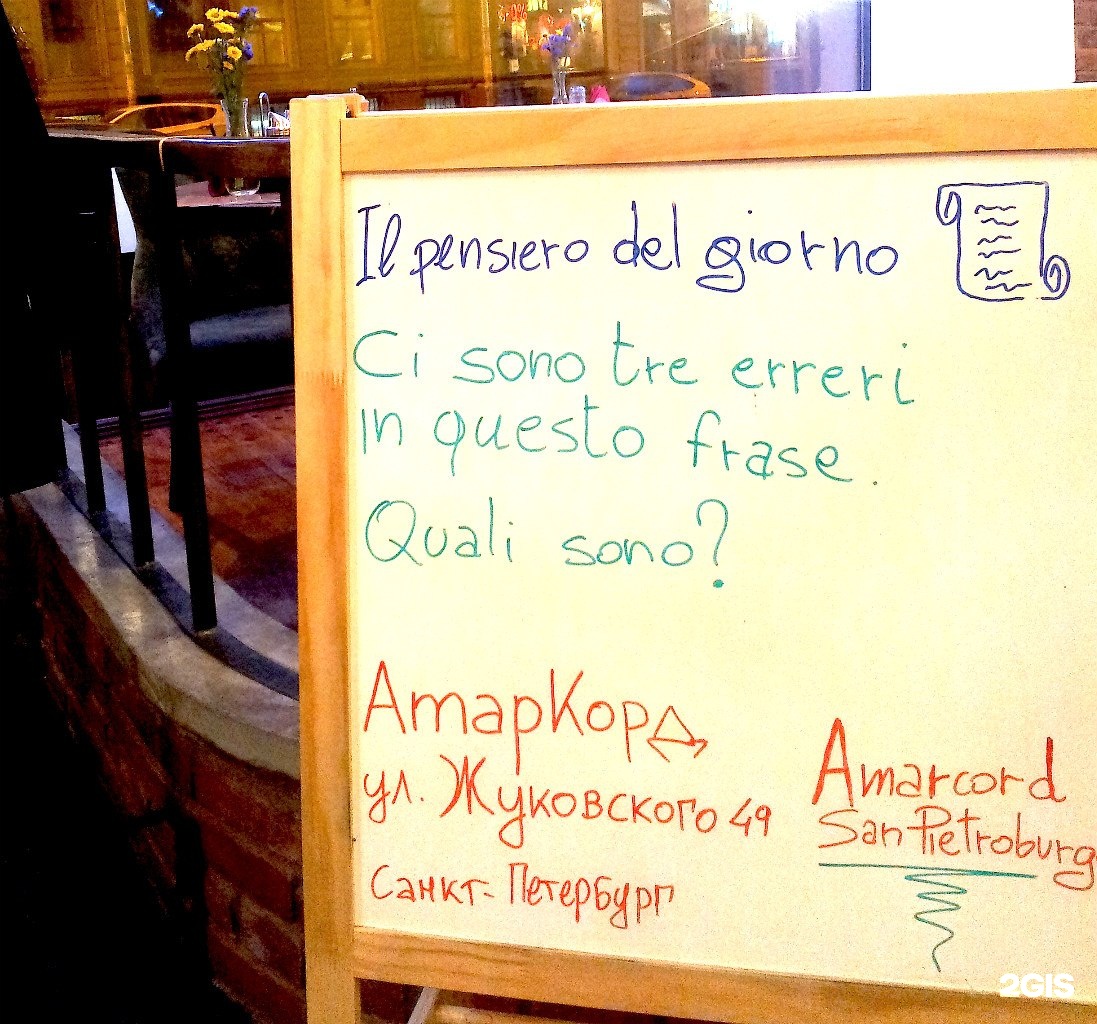 Il pensiero del giorno
Ci sono tre erreri
in questo frase.
Quali sono?
АмарКорд
ул. Жуковского 49
Санкт-Петербург
Amarcord
San Pietroburg
2GIS